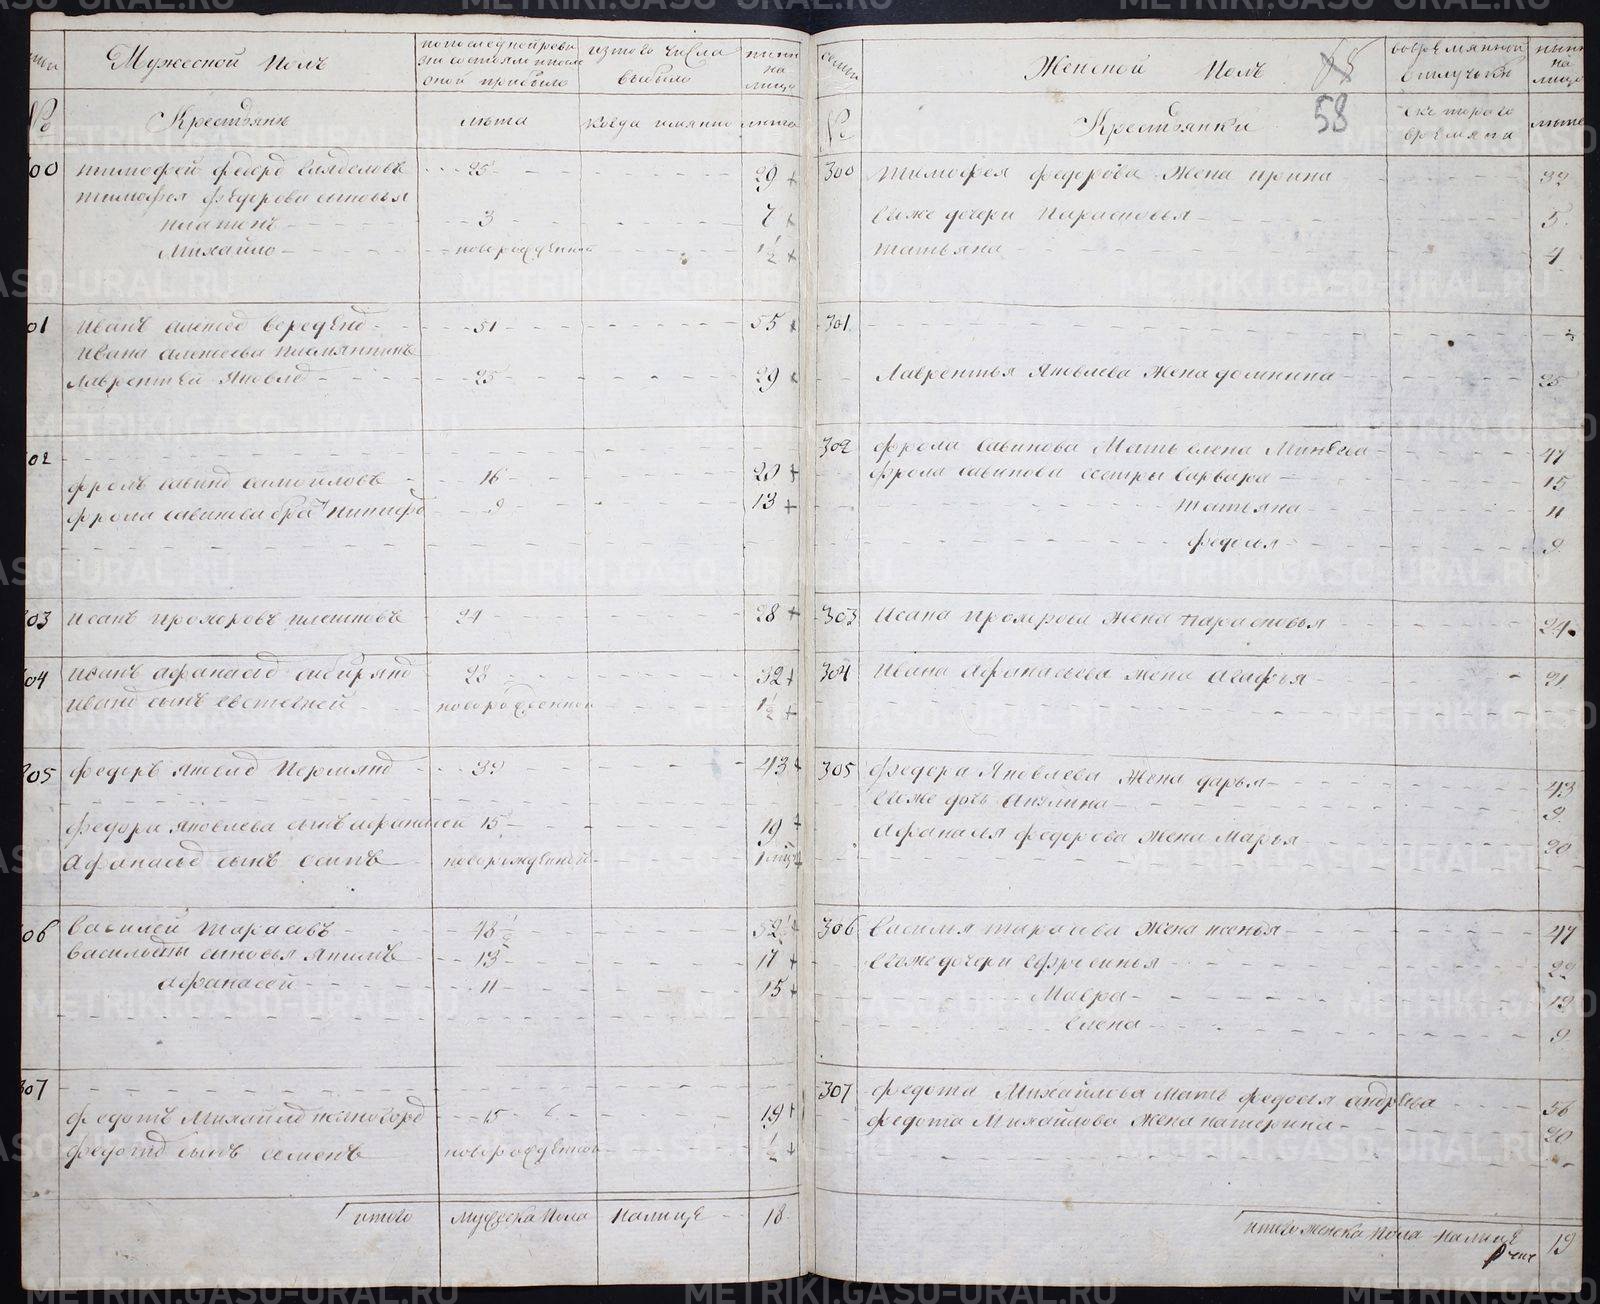 Мужеской Полъ
по последней реви
зiи состояло и после
оной прибыло
изтого числа
выбыло
ныне
на
лицо
№
Крестьянъ
лѣта
когда имянно
лѣта
тимофей федоро 25 29
тимофея Федорова сыновья
платонъ 3 7
Михайло новорожденной 1½
01 иванъ алексее 51 55
ивана алексеева племянникъ
лаврентей яковле 25 29
02
фролъ савино самойловъ 16 20
фрола савинова братъ 9 13
03 исакъ прохоровъ 24 28
04 иванъ афанасье сибиряко 28 32
ивано сынъ евстегней новорожденной 1½
05 федоръ яковле Пермяко 39 43
федора яковлева сынъ афанасей 15 19
Афанасье сынъ осипъ новорожденной 1
306 василей тарасовъ 48½ 52½
сыновья якимъ 13 17
афанасей 11 15
307
федотъ михайло 15 19
федото сынъ семенъ новорожденной ½
итого мужеска пола налицѣ 18
семьи
Женской Полъ
58
58
вовремянной
отлучьки
ныне
на
лицо
№
Крестьянки
скоторого
времяни
лѣта
300 тимофея федорова жена ирина 32
ево же дочери парасковья 5
татьяна 4
301
лаврентья яковлева жена домнина 25
302 фрола савинова мать елена Минѣева 47
фрола савинова сестры варвара 15
татьяна 11
федосья 9
303 Исака прохорова жена парасковья 24
304 ивана афанасьева жена агафья 31
305 федора яковлева жена дарья 43
ево же дочь акилина 9
афанасья федорова жена Марья 20
306 василья тарасова жена ксенья 47
ево же дочери ефросинья 22
Мавра 12
елена 9
307 федота Михайлова мать федосья андрѣева 56
федота Михайлова жена катерина 20
итого женска пола налицѣ 19